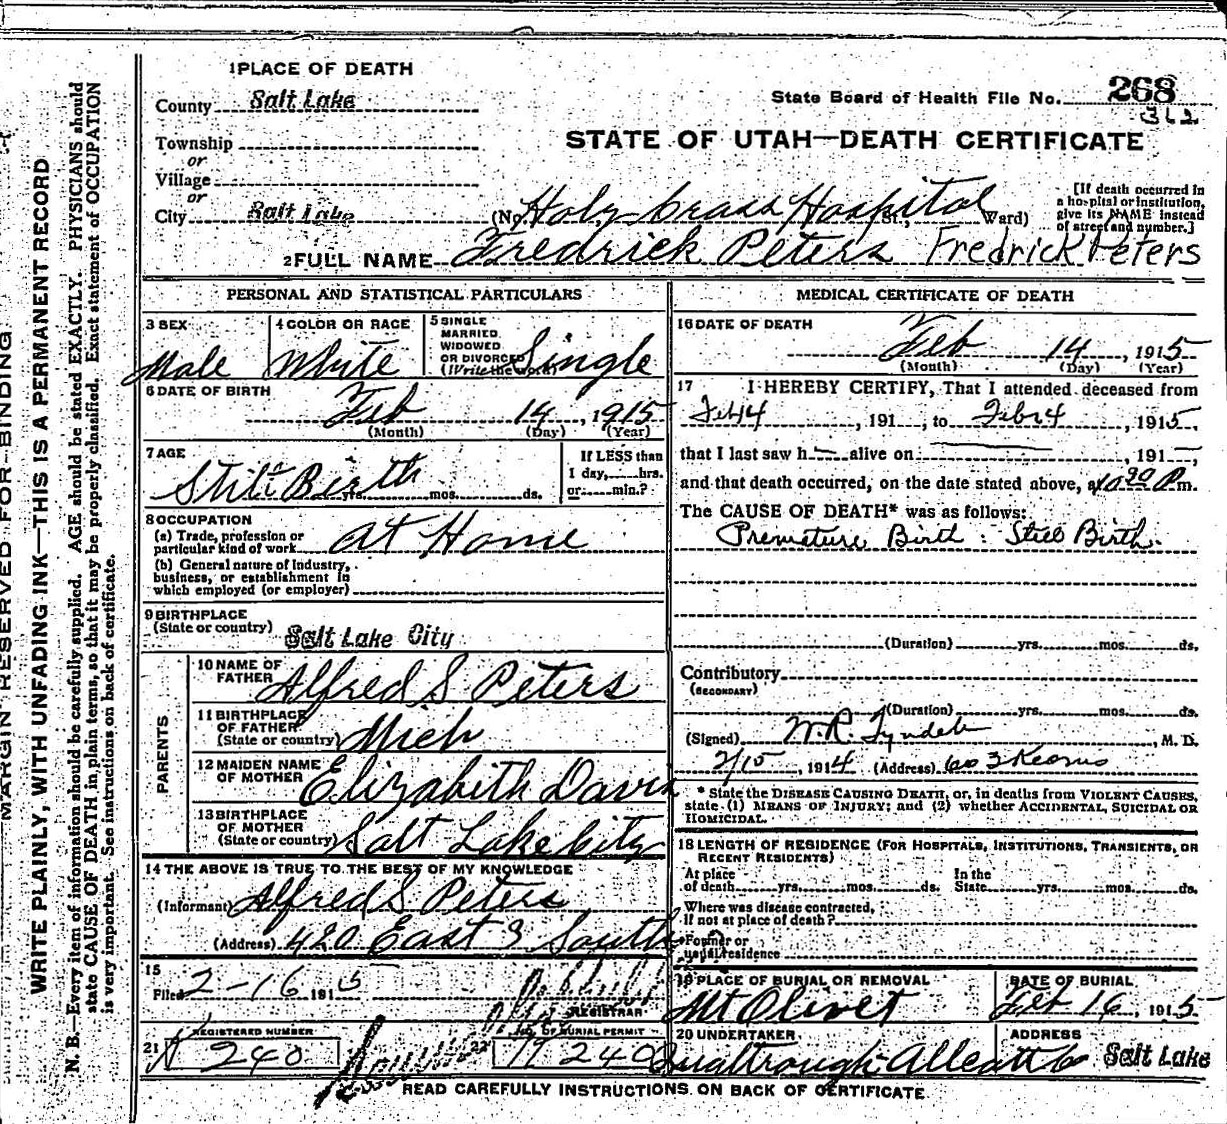 1 PLACE OF DEATH
County Salt Lake
State Board of Health File No. 268
362
STATE OF UTAH—DEATH CERTIFICATE
Township
or
Village
or
City Salt Lake (No. Holy Cross Hospital St., Ward)
[If death occurred in
a hospital or institution,
give its NAME instead
of street and number.]
2 FULL NAME Fredrick Peters Fredrick Peters
PERSONAL AND STATISTICAL PARTICULARS
3 SEX
Male
4 COLOR OR RACE
White
5 SINGLE
MARRIED,
WIDOWED
OR DIVORCED
(Write the word)
Single
6 DATE OF BIRTH
Feb 14, 1915
(Month) (Day) (Year)
7 AGE
Still Birth
yrs. mos. ds.
If LESS than
1 day, hrs.
or min.?
8 OCCUPATION
(a) Trade, profession or
particular kind of work at Home
(b) General nature of Industry,
business, or establishment in
which employed (or employer)
9 BIRTHPLACE
(State or country) Salt Lake City
PARENTS
10 NAME OF
FATHER Alfred S Peters
11 BIRTHPLACE
OF FATHER
(State or country) Mich
12 MAIDEN NAME
OF MOTHER Elizabith Davis
13 BIRTHPLACE
OF MOTHER
(State or country) Salt Lake City
14 THE ABOVE IS TRUE TO THE BEST OF MY KNOWLEDGE
(Informant) Alfred S Peters
(Address) 420 East 3 South
15
Filed 2-16 1915
REGISTRAR
REGISTERED NUMBER
21 240
NO. OF BURIAL PERMIT
22 240
MEDICAL CERTIFICATE OF DEATH
16 DATE OF DEATH
Feb 14, 1915
(Month) (Day) (Year)
17 I HEREBY CERTIFY, That I attended deceased from
Feb 14, 191 , to Feb 14, 1915,
that I last saw h— alive on , 191 ,
and that death occurred, on the date stated above, at 10 30 P m.
The CAUSE OF DEATH* was as follows:
Premature Birth: Still Birth.
(Duration) yrs. mos. ds.
Contributory
(SECONDARY)
(Duration) yrs. mos. ds.
(Signed) W.R. Tyndale, M. D.
2/15, 1914 (Address) 603 Kearns
* State the DISEASE CAUSING DEATH, or, in deaths from VIOLENT CAUSES,
state (1) MEANS OF INJURY; and (2) whether ACCIDENTAL, SUICIDAL OR
HOMICIDAL.
18 LENGTH OF RESIDENCE (FOR HOSPITALS, INSTITUTIONS, TRANSIENTS, OR
RECENT RESIDENTS)
At place
of death yrs. mos. ds.
In the
State yrs. mos. ds.
Where was disease contracted,
If not at place of death?
Former or
usual residence
19 PLACE OF BURIAL OR REMOVAL
Mt Olivet
DATE OF BURIAL
Feb 16, 1915
20 UNDERTAKER
ADDRESS
Salt Lake
READ CAREFULLY INSTRUCTIONS ON BACK OF CERTIFICATE
MARGIN RESERVED FOR BINDING
WRITE PLAINLY, WITH UNFADING INK—THIS IS A PERMANENT RECORD
N. B.—Every item of information should be carefully supplied. AGE should be stated EXACTLY. PHYSICIANS should
state CAUSE OF DEATH in plain terms, so that it may be properly classified. Exact statement of OCCUPATION
is very important. See instructions on back of certificate.